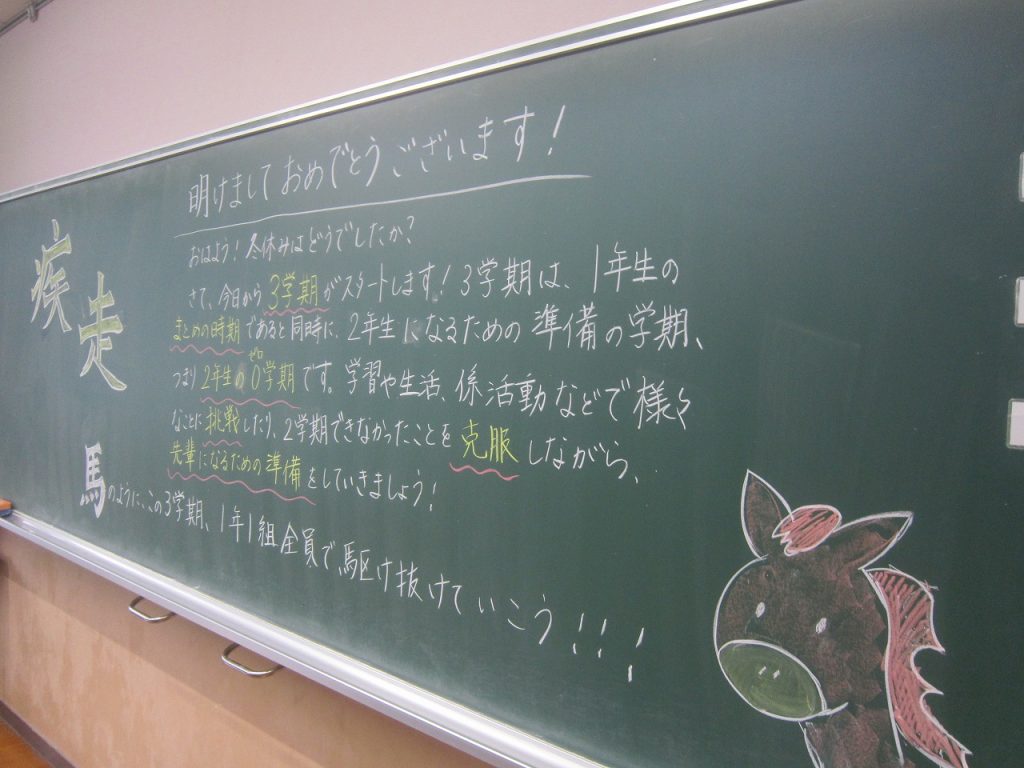 疾走
明けましておめでとうございます！
おはよう！冬休みはどうでしたか？
さて、今日から3学期がスタートします！3学期は、1年生の
まとめの時期であると同時に、2年生になるための準備の学期、
つまり2年生の0学期です。学習や生活、係活動などで様々
ゼロ
なことに挑戦したり、2学期できなかったことを克服しながら、
先輩になるための準備をしていきましょう！
馬のように、この3学期、1年1組全員で駆け抜けていこう！！！